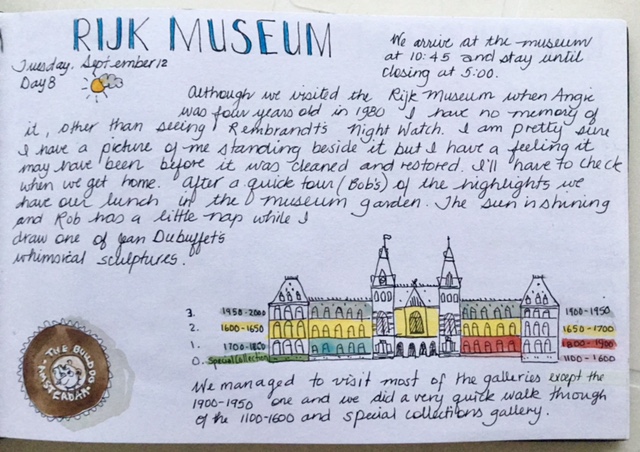 RIJK MUSEUM
Tuesday, September 12
Day 8
We arrive at the museum
at 10:45 and stay until
closing at 5:00.
Although we visited the Rijk Museum when Angie
was four years old in 1980 I have no memory of
it, other than seeing Rembrandt's Night Watch. I am pretty sure
I have a picture of me standing beside it but I have a feeling it
may have been before it was cleaned and restored. I'll have to check
when we get home. After a quick tour (Bob's) of the highlights we
have our lunch in the museum garden. The sun is shining
and Rob has a little nap while I
draw one of Jean Dubuffet's
whimsical sculptures.
3. 1950-2000
2. 1600-1650
1. 1700-1800
0. Special Collection
1900-1950
1650-1700
1800-1900
1100-1600
THE BULLDOG
AMSTERDAM
We managed to visit most of the galleries except the
1900-1950 one and we did a very quick walk through
of the 1100-1600 and special collections gallery.